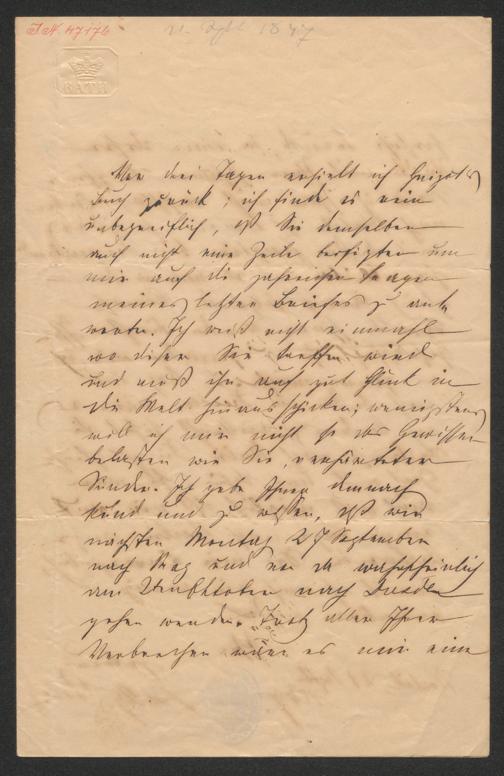 I.N. 47176
21. Sept 1847
BATH
Vor drei Tagen erhielt ich Guizot's
Buch zurück; ich finde es rein
unbegreiflich, daß Sie demselben
auch nicht eine Zeile beifügten um
mir auf die zahreichen Fragen
meines letzten Briefes zu ant
worten. Ich weiß nicht einmahl
wo dieser Sie treffen wird
und muß ihn auf gut Glück in
die Welt hinaus schicken; wenigstens
will ich mir nicht so das Gewissen
belasten wie Sie, verhärteter
Sünder. Ich gebe Ihnen demnach
kund und zu wissen, daß wir
nächsten Montag 27 September
nach Prag und von da wahrscheinlich
am October nach Dresden
gehen werden. Trotz allen Ihren
Verbrechen wäre es mir eine